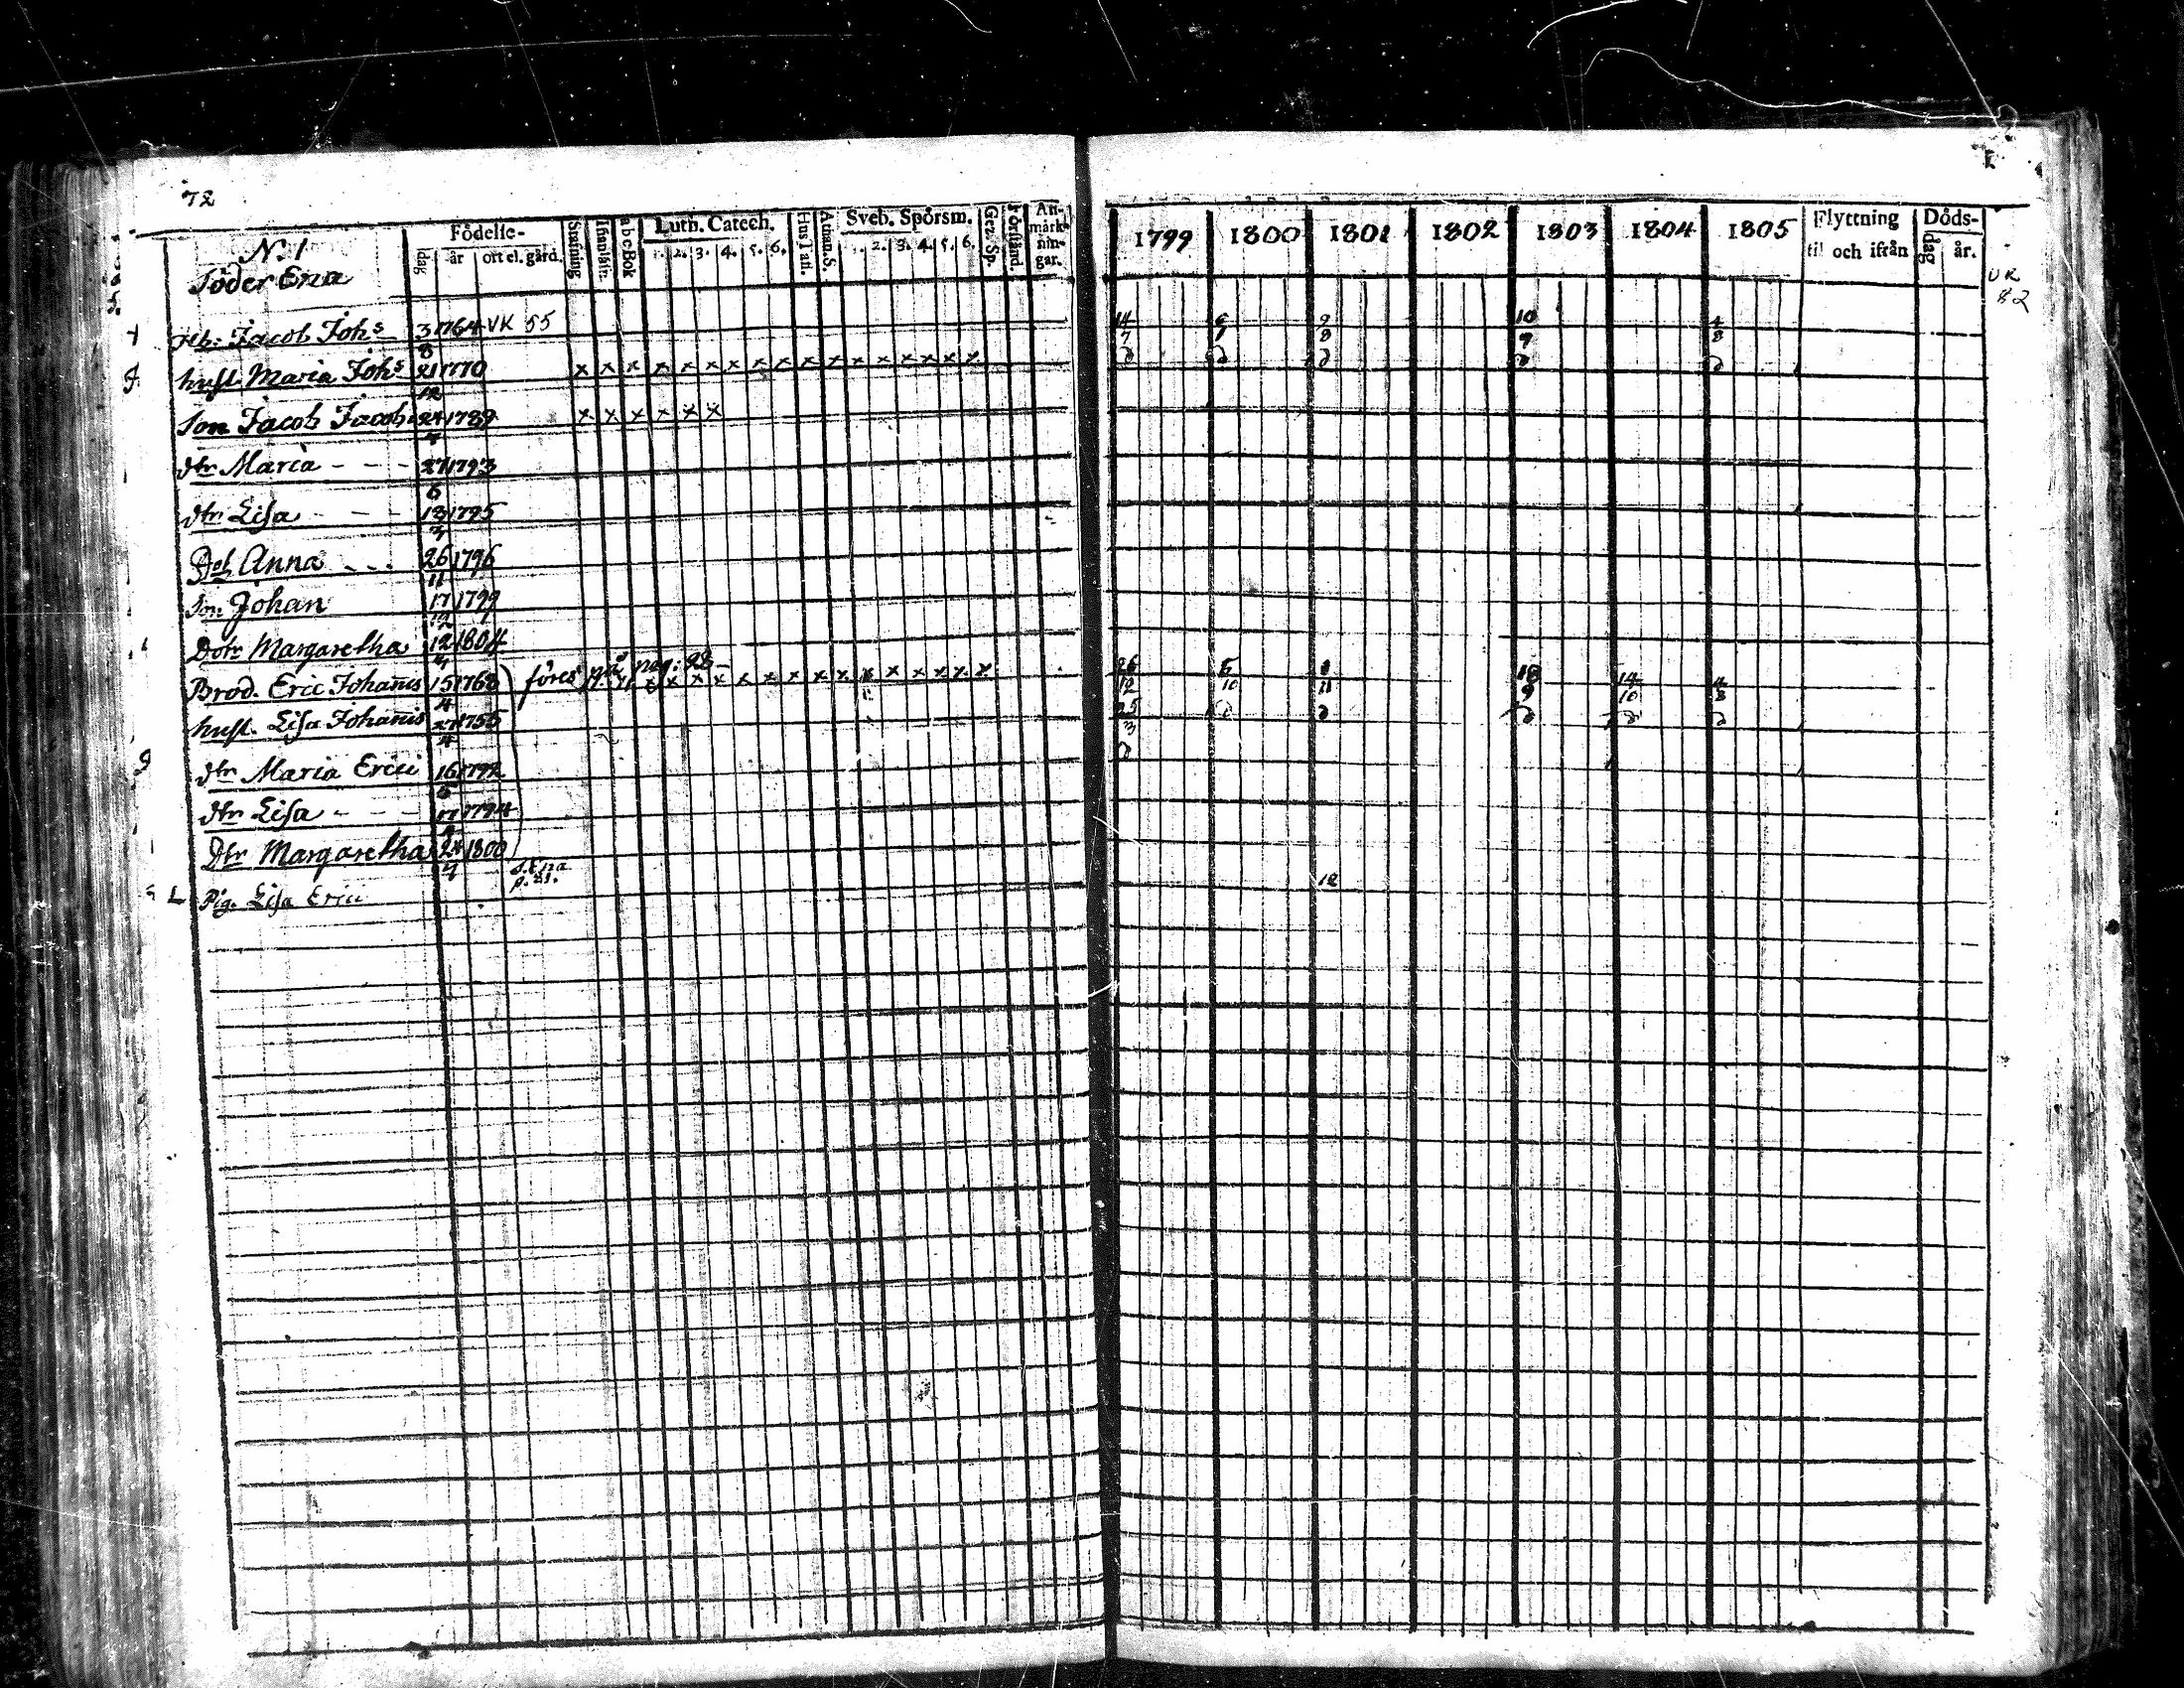 72
Födelse-
dag år ort el. gård.
Stafning Innläsn. abcBok
Luth. Catech.
1. 2. 3. 4. 5. 6.
Hus Tafl. Athan. S.
Sveb. Spörsm.
1. 2. 3. 4. 5. 6.
Grz. Sp. Förstånd.
An-
märk-
nin-
gar.
1799 1800 1801 1802 1803 1804 1805
Flyttning
til och ifrån
Döds-
dag år.
N. 1
Söder Ena
VK
82
Jacob Johs 3/8 1764 VK 55
14/7 9/8 10/9 4/8
hust. Maria Johs 21/12 1770 x x x x x x x x x x x x x x x x x
Son Jacob Jacobs 24 1789 x x x x x x
dtr Maria - - - 27/6 1793
dtr Lisa - - - 13/7 1795
Dot Anna - - - 26/11 1796
Son Johan 17/12 1799
Dotr Margaretha 12/4 1804
föres på pag: 28
Brod. Eric Johañis 15/4 1768 x x x x x x x x x x x x x x
26/12 6/10 8/11 18/9 14/10 4/8
hust. Lisa Johañis 27/4 1755
25/3
dtr Maria Erici 16 1792
dtr Lisa - - - 17 1794
Dtr Margaretha 24/4 1800
S. Ena
p. 21.
L Pig. Lisa Erici
12